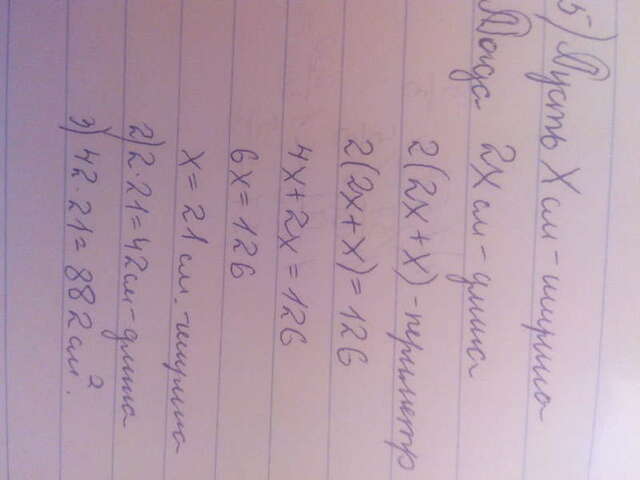 5) Пусть X см - ширина
Тогда 2X см - длина
2(2X + X) - периметр
2(2X + X) = 126
4X + 2X = 126
6X = 126
X = 21 см. - ширина
2) 2 · 21 = 42 см - длина
3) 42 · 21 = 882 см².